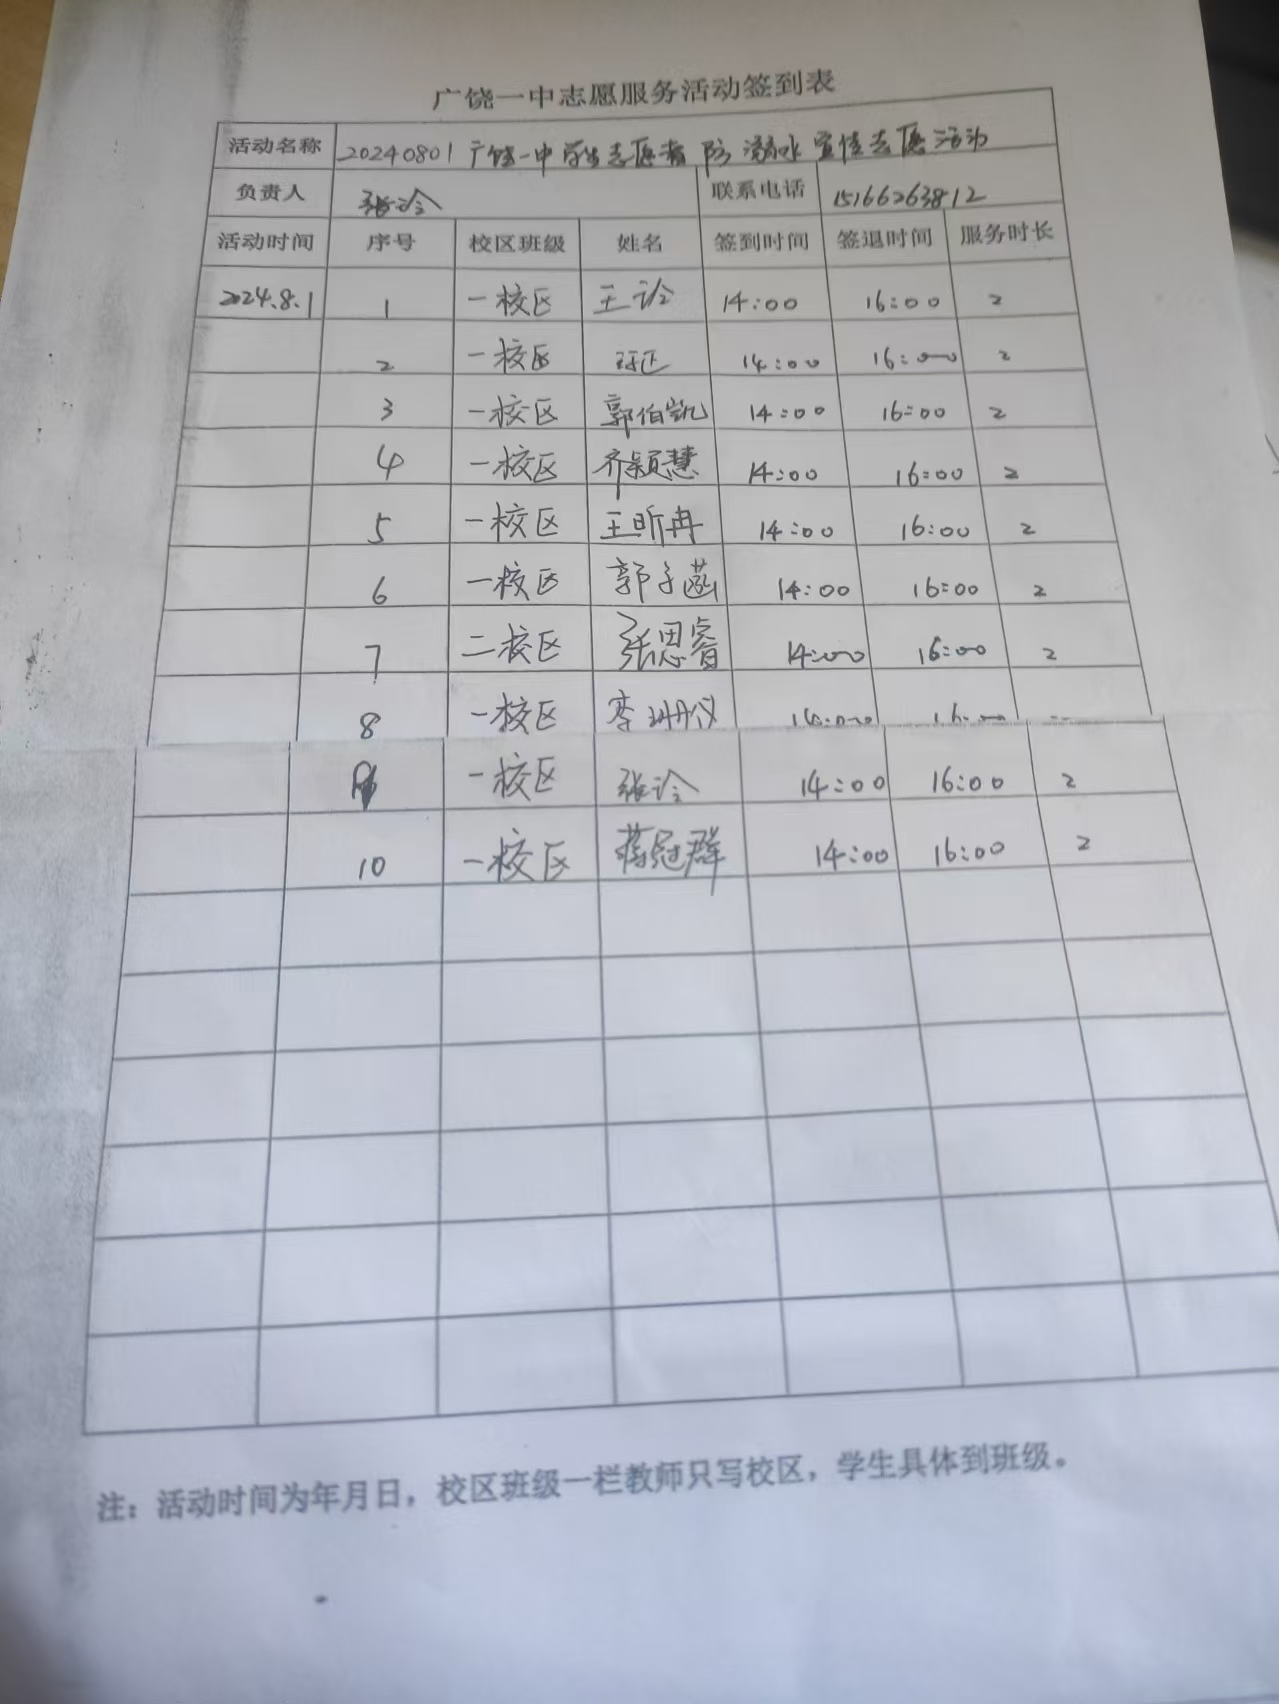 广饶一中志愿服务活动签到表
活动名称 20240801广饶一中学生志愿者防溺水宣传志愿活动
负责人 张诊 联系电话 15166263812
活动时间 序号 校区班级 姓名 签到时间 签退时间 服务时长
2024.8.1 1 一校区 王诊 14:00 16:00 2
2 一校区 14:00 16:00 2
3 一校区 郭伯凯 14:00 16:00 2
4 一校区 齐颖慧 14:00 16:00 2
5 一校区 王昕冉 14:00 16:00 2
6 一校区 郭子菡 14:00 16:00 2
7 二校区 张思睿 14:00 16:00 2
8 一校区 李珊仪 14:00 16:00
一校区 张诊 14:00 16:00 2
10 一校区 蒋冠群 14:00 16:00 2
注：活动时间为年月日，校区班级一栏教师只写校区，学生具体到班级。